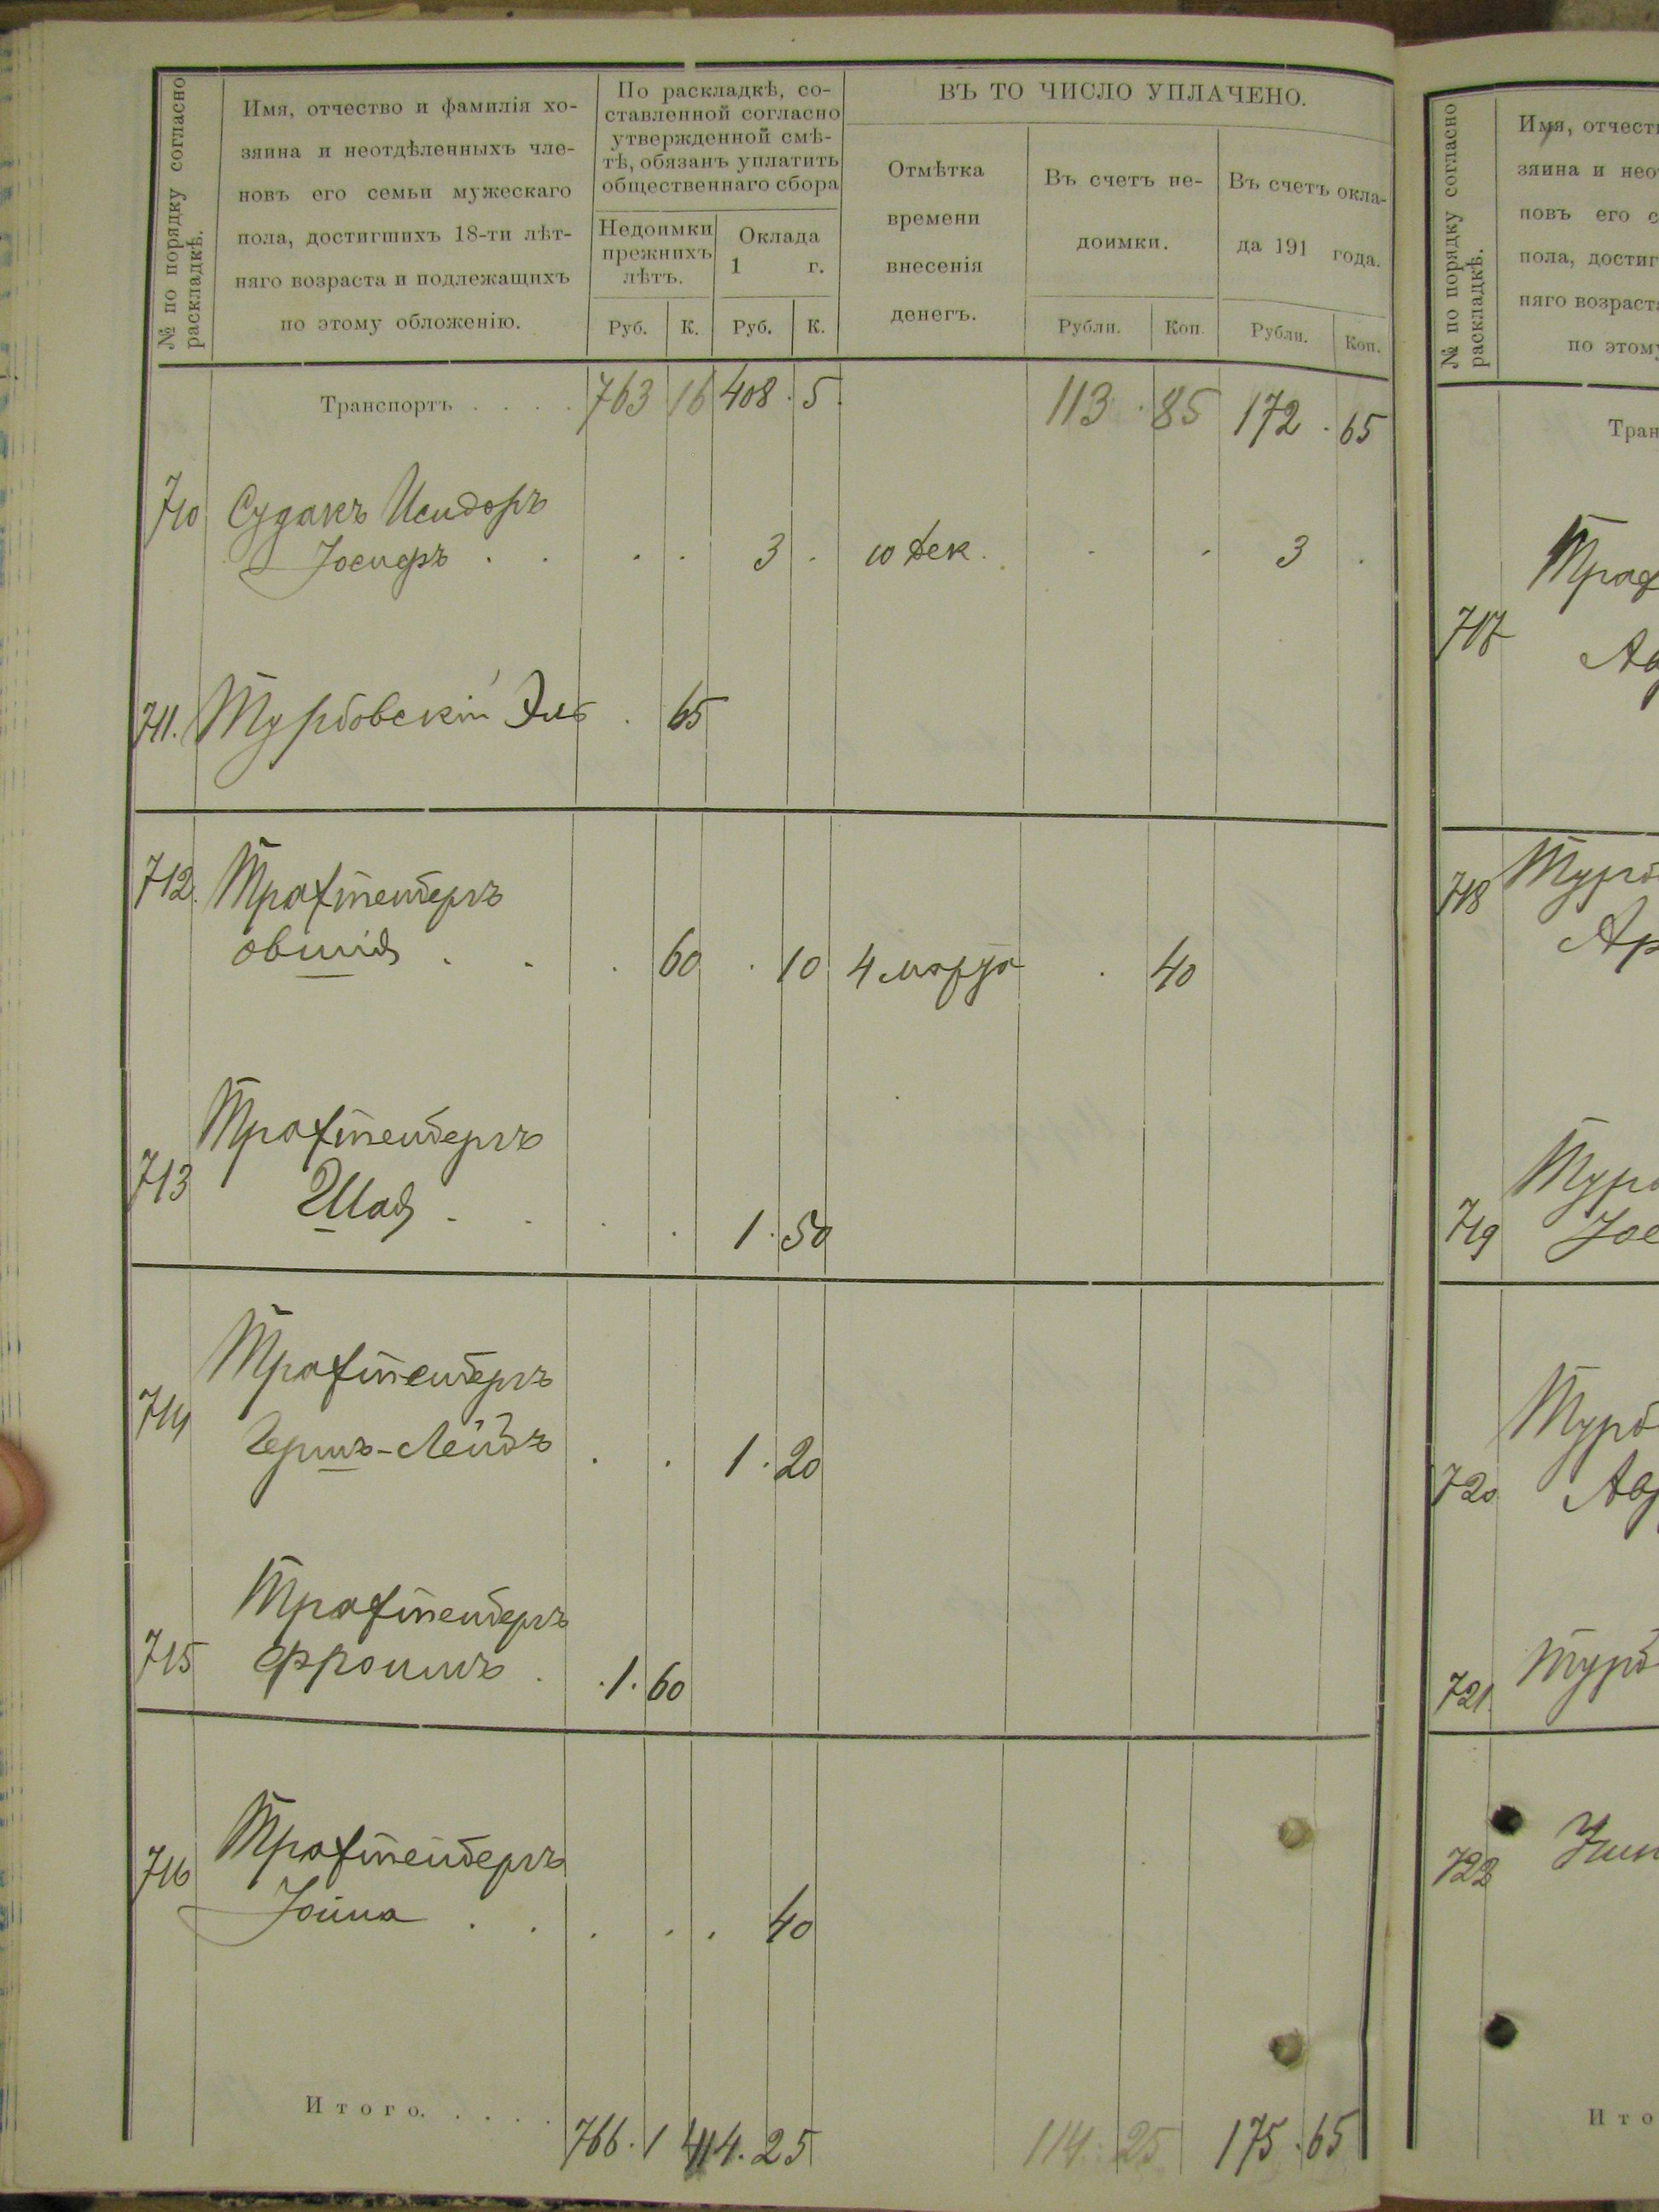 № по порядку согласно
раскладкѣ.
Имя, отчество и фамилія хо-
зяина и неотдѣленныхъ чле-
новъ его семьи мужескаго
пола, достигшихъ 18-ти лѣт-
няго возраста и подлежащихъ
по этому обложенію.
По раскладкѣ, со-
ставленной согласно
утвержденной смѣ-
тѣ, обязанъ уплатить
общественнаго сбора
Недоимки
прежнихъ
лѣтъ.
Оклада
1 г.
Руб. К. Руб. К.
ВЪ ТО ЧИСЛО УПЛАЧЕНО.
Отмѣтка
времени
внесенія
денегъ.
Въ счетъ не-
доимки.
Рубли. Коп.
Въ счетъ окла-
да 191 года.
Рубли. Коп.
Транспортъ . . . . 763 16 408 . 5 113 . 85 172 . 65
710 Судакъ Исидоръ
Іосифъ . . . . 3 . 10 дек. . . 3 .
711. Турбовскій Эль . 65
712. Трахтенберъ
Овшія . . . 60 . 10 4 марта . 40
Трахтенберъ
713 Шая . . . . 1 . 50
Трахтенберъ
714 Герш-Лейбъ . . 1 . 20
Трахтенберъ
715 Фроимъ . . 1 . 60
Трахтенберъ
716 Іойна . . . . . 40
Итого. . . . . 766 . 1 414 . 25 114 . 25 175 . 65
№ по порядку согласно
раскладкѣ.
Имя, отчест
зяина и нео
новъ его с
пола, достиг
няго возраст
по этому
Тран
717
718 Турб
719
720 Турб
721. Турб
722
Ито